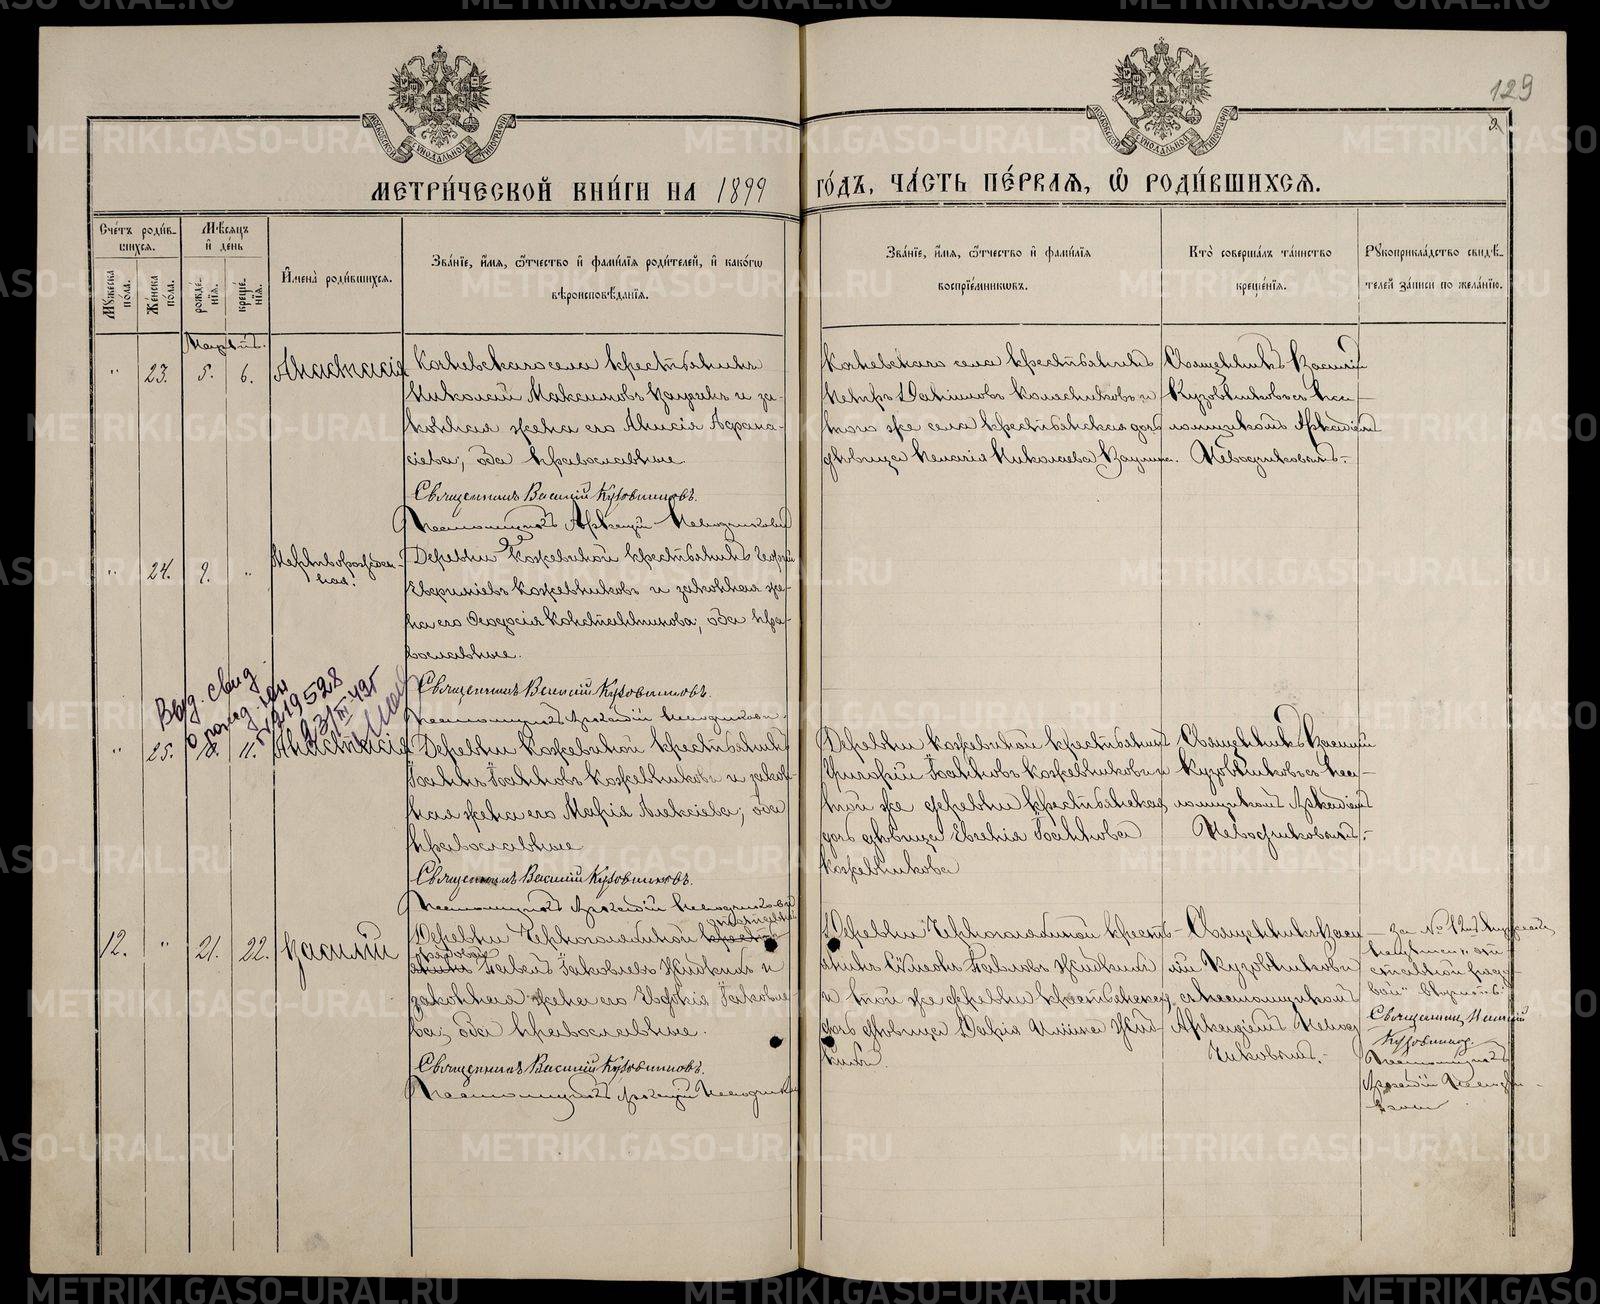 129
9.
МЕТРИ́ЧЕСКОЙ КНИ́ГИ НА 1899 ГО́ДЪ, ЧА́СТЬ ПЕ́РВАЯ, Ѡ РОДИ́ВШИХСЯ.
Сче́тъ роди́в-
шихся.
Мꙋжеска по́ла.
Женска по́ла.
Мѣсяцъ и де́нь
рожде́нїя.
креще́нїя.
И҆мена̀ роди́вшихся.
Зва́нїе, и҆́мя, ѻ҆́тчество и҆ фами́лїя роди́телей, и҆ како́гѡ
вѣроисповѣ́данїя.
Зва́нїе, и҆́мя, ѻ҆́тчество и҆ фами́лїя
воспрїе́мникѡвъ.
Кто̀ соверша́лъ та́инство
креще́нїя.
Рꙋкоприкла́дство свидѣ́-
телей за́писи по жела́нїю.
Мартъ.
" 23. 5. 6. Анастасія
Кочневскаго села крестьянинъ
Николай Максимовъ Ваулинъ и за-
конная жена его Анисія Афана-
сіева; оба православные.
Священникъ Василій Кузовниковъ.
Псаломщикъ Аркадій Неводчиковъ
Кочневскаго села крестьянинъ
Петръ Даніиловъ Колесниковъ и
того же села крестьянская дочь
дѣвица Пелагія Николаева Ваулина.
Священникъ Василій
Кузовниковъ съ пса-
ломщикомъ Аркадіемъ
Неводчиковымъ.
" 24. 9. " Мертворожден-
ная.
Деревни Кожевиной крестьянинъ Георгій
Кожевниковъ и законная же-
на его Ѳеодосія Константинова, оба пра-
вославные.
Священникъ Василій Кузовниковъ.
Псаломщикъ Аркадій Неводчиковъ.
Выд. свид.
о рожд.
219528
23/III 43г
" 25. 10. 11. Анастасія
Деревни Кожевиной крестьянинъ
Іоаннъ Іоанновъ Кожевниковъ и закон-
ная жена его Марія Алексіева, оба
православные
Священникъ Василій Кузовниковъ.
Псаломщикъ Аркадій Неводчиковъ
Деревни Кожевиной крестьянинъ
Григорій Іоанновъ Кожевниковъ и
той же деревни крестьянская
дочь дѣвица Евгенія Іоаннова
Кожевникова
Священникъ Василій
Кузовниковъ съ пса-
ломщикомъ Аркадіемъ
Неводчиковымъ.
12. " 21. 22. Василій
Деревни Черноголяшной
рядовой Павелъ Іаковлевъ Жидкихъ и
законная жена его Евдокія Іаковле-
ва, оба православные.
Священникъ Василій Кузовниковъ.
Псаломщикъ Аркадій Неводчиковъ
Деревни Черноголяшной кресть-
янинъ Павловъ Жидкихъ
и той же деревни крестьянская
дочь дѣвица Дарія Жид-
кихъ.
Священникъ Васи-
лій Кузовниковъ
съ псаломщикомъ
Аркадіемъ Невод-
чиковымъ.
За № 12
Священникъ Василій
Кузовниковъ.
Псаломщикъ
Аркадій Неводчи-
ковъ
METRIKI.GASO-URAL.RU